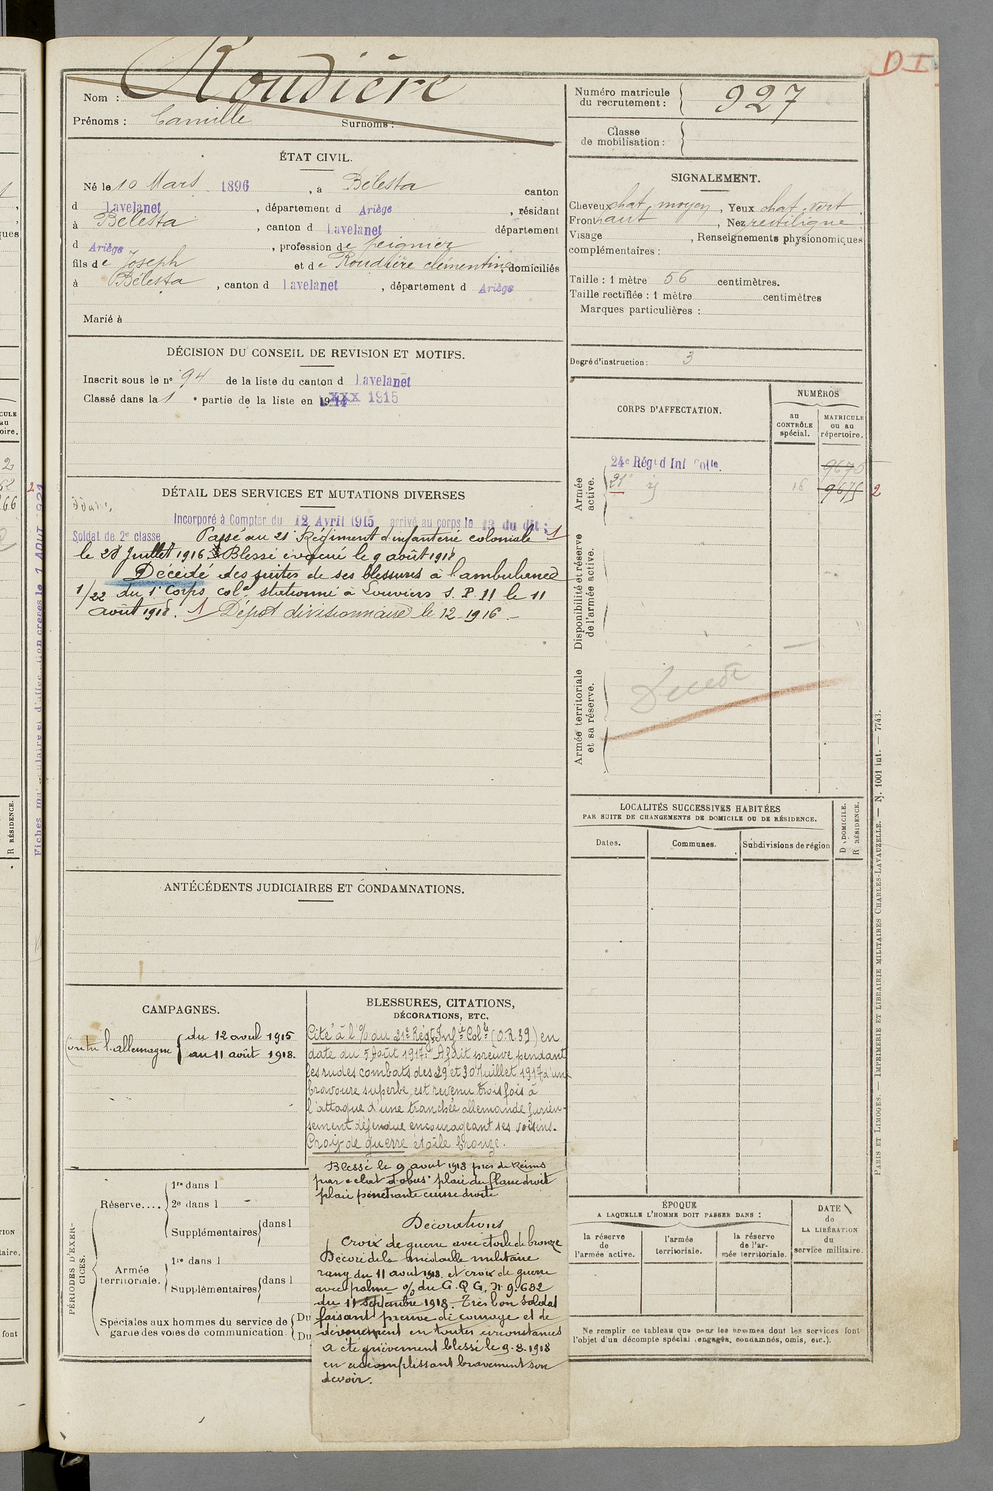 D I
Roudière
Nom :
Prénoms : Camille Surnoms :
Numéro matricule du recrutement : 927
Classe de mobilisation :
ÉTAT CIVIL.
Né le 10 Mars 1896, à Bélesta canton
d Lavelanet, département d Ariège, résidant
à Bélesta, canton d Lavelanet département
d Ariège, profession de peignier
fils de Joseph et de Roudière clémentine, domiciliés
à Bélesta, canton d Lavelanet, département d Ariège
Marié à
SIGNALEMENT.
Cheveux chat. moyen, Yeux chat. vert
Front haut, Nez rectiligne
Visage , Renseignements physionomiques
complémentaires :
Taille : 1 mètre 56 centimètres.
Taille rectifiée : 1 mètre centimètres
Marques particulières :
Degré d'instruction : 3
DÉCISION DU CONSEIL DE REVISION ET MOTIFS.
Inscrit sous le n° 94 de la liste du canton d Lavelanet
Classé dans la 1 e partie de la liste en 1914 XXX 1915
CORPS D'AFFECTATION.
NUMÉROS
au CONTRÔLE spécial.
MATRICULE ou au répertoire.
Armée active.
24e Régt d'Inf Colle.
21e
16 9675 2
Disponibilité et réserve de l'armée active.
Armée territoriale et sa réserve.
Décédé
DÉTAIL DES SERVICES ET MUTATIONS DIVERSES
Incorporé à Compter du 12 Avril 1915 arrivé au corps le 12 du dit
Soldat de 2e classe Passé au 21e Régiment d'infanterie coloniale 1
le 28 Juillet 1916. Blessé évacué le 9 août 1918
Décédé des suites de ses blessures à l'ambulance
1/22 du 1er Corps colal stationné à Louviers S. P. 11 le 11
août 1918. 1 Dépôt divisionnaire le 12-1916 -
LOCALITÉS SUCCESSIVES HABITÉES
PAR SUITE DE CHANGEMENTS DE DOMICILE OU DE RÉSIDENCE.
Dates. Communes. Subdivisions de région
D DOMICILE.
R RÉSIDENCE.
ANTÉCÉDENTS JUDICIAIRES ET CONDAMNATIONS.
CAMPAGNES.
Contre l'allemagne du 12 avril 1915
au 11 août 1918.
BLESSURES, CITATIONS,
DÉCORATIONS, ETC.
Cité à l'% du 21e Régt Infie Colle (O.R. 39) en
date du 5 Août 1917: A fait preuve pendant
les rudes combats des 29 et 30 Juillet 1917 d'une
bravoure superbe, est revenu trois fois à
l'attaque d'une tranchée allemande furieu-
sement défendue encourageant ses voisins.
Croix de guerre étoile bronze.
Blessé le 9 août 1918 près de Reims
par eclat d'obus plaie du flanc droit
plaie penetrante cuisse droite
Décorations
Croix de guerre avec étoile de bronze
Décoré de la médaille militaire
rang du 11 aout 1918. et croix de guerre
avec palme % du G.Q.G. N° 9.632
du 11 septembre 1918. Très bon soldat
faisant preuve de courage et de
dévouement en toutes circonstances
A été grièvement blessé le 9-8-1918
en accomplissant bravement son
devoir.
PÉRIODES D'EXERCICES.
Réserve....
1re dans l
2e dans l
Supplémentaires dans l
Armée territoriale.
1re dans l
Supplémentaires dans l
Spéciales aux hommes du service de garde des voies de communication
Du
Du
ÉPOQUE
A LAQUELLE L'HOMME DOIT PASSER DANS :
la réserve de l'armée active.
l'armée territoriale.
la réserve de l'armée territoriale.
DATE de LA LIBÉRATION du service militaire.
Ne remplir ce tableau que pour les hommes dont les services font
l'objet d'un décompte spécial (engagés, condamnés, omis, etc.).
PARIS ET LIMOGES. — IMPRIMERIE ET LIBRAIRIE MILITAIRES CHARLES-LAVAUZELLE. — N. 1001 int. — 7743.
R RÉSIDENCE.